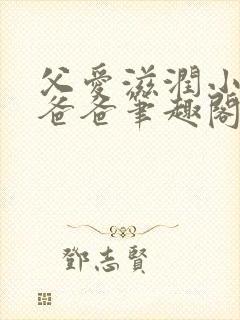 父愛滋潤小
爸爸筆趣閣
鄧志賢